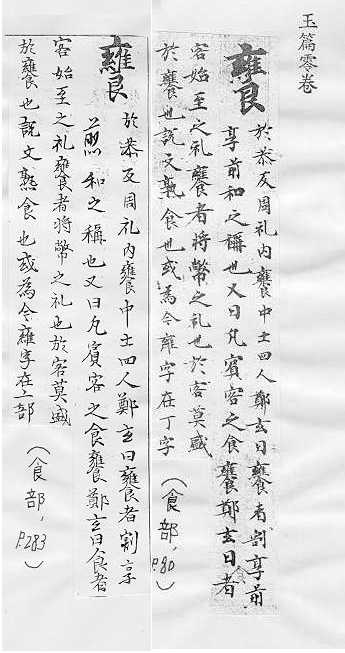 玉篇零卷
饔
於恭反周礼内饔中士四人鄭玄曰饔者割享煎
享煎和之稱也又曰凡賓客之食饔鄭玄曰食者
客始至之礼饔者将幣之礼也於客莫盛
於饔也説文孰食也或為今雍字在丁字
(食部, P.80)
饔
於恭反周礼内饔中士四人鄭玄曰饔者割享
煎和之稱也又曰凡賓客之食饔鄭玄曰食者
客始至之礼饔者将幣之礼也於客莫盛
於饔也説文熟食也或為今雍字在广部
(食部, P.283)